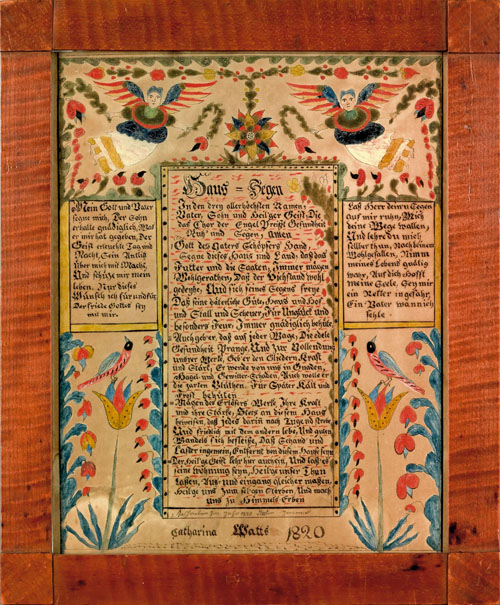 Haus = Segen
In den drey allerhöchsten Namen,
Vater, Sohn und Heilger Geist, Die
das Chor der Engel Preißt Gesundheit
Ruh' und Segen, Amen
Gott des Vaters Schöpfers Hand,
Segne dieses Haus und Land, daß das
Futter und die Saaten, Immer mögen
Wohlgerathen, Daß der Viehstand wohl
gedeyhe, Und sich seines Segens freue
Daß seine väterliche Güte, Haus und Hof
und Stall und Scheuer, Für Unglück und
besonders Feur, Immer gnädiglich behüte,
Auch geber, daß auf jeder Wage, Die edele
Gesundheit Prange, Und zur Vollendung
unsrer Werke, Geb' er den Gliedern Kraft
und Stärk, Er wende von uns in Gnaden,
Hagel und Gewitter-Schaden, Auch wolle er
die zarten Blüthen, Für Später Kält und
Frost behüten
Mögen des Erlösers Werke, Ihre Kraft
und ihre Stärke, Stets an diesem Haus
beweisen, daß jedes darin nach Tugend strebe
Und friedlich mit dem andern lebe, Und guten
Wandels sich befleiße, Daß Schand und
Laster ingemein, Entfernt von diesem Hause seyn
Der Heilge Geist kehr hier auch ein, Und laß es
seine Wohnung seyn, Heilge unser Thun und
laßen, Aus und eingang gleicher maßen,
Heilge uns zum selgen Sterben Und mach
uns zu Himmels Erben
Mein Gott und Vater
segne mich, Der Sohn
erhalle gnädiglich, Was
er mir hat gegeben, Der
Geist erleuchte Tag und
Nacht, Sein Antlitz
über mir mit Macht,
Und schütze mir mein
leben. Nur dieses
Wünsch ich für und für
Der friede Gottes sey
mit mir.
Laß Herr dein'n Segen
auf mir ruhn, Mich
deine Wege wallen,
Und lehre du mich
selber thun, Nach deinem
Wohlgefallen, Nim m
meines Lebens gnädig
wahr, Auf dich hofft
meine Seele, Sey mir
ein Retter in gefahr,
Ein Vater wann ich
fehle.
Catharina Watts 1820